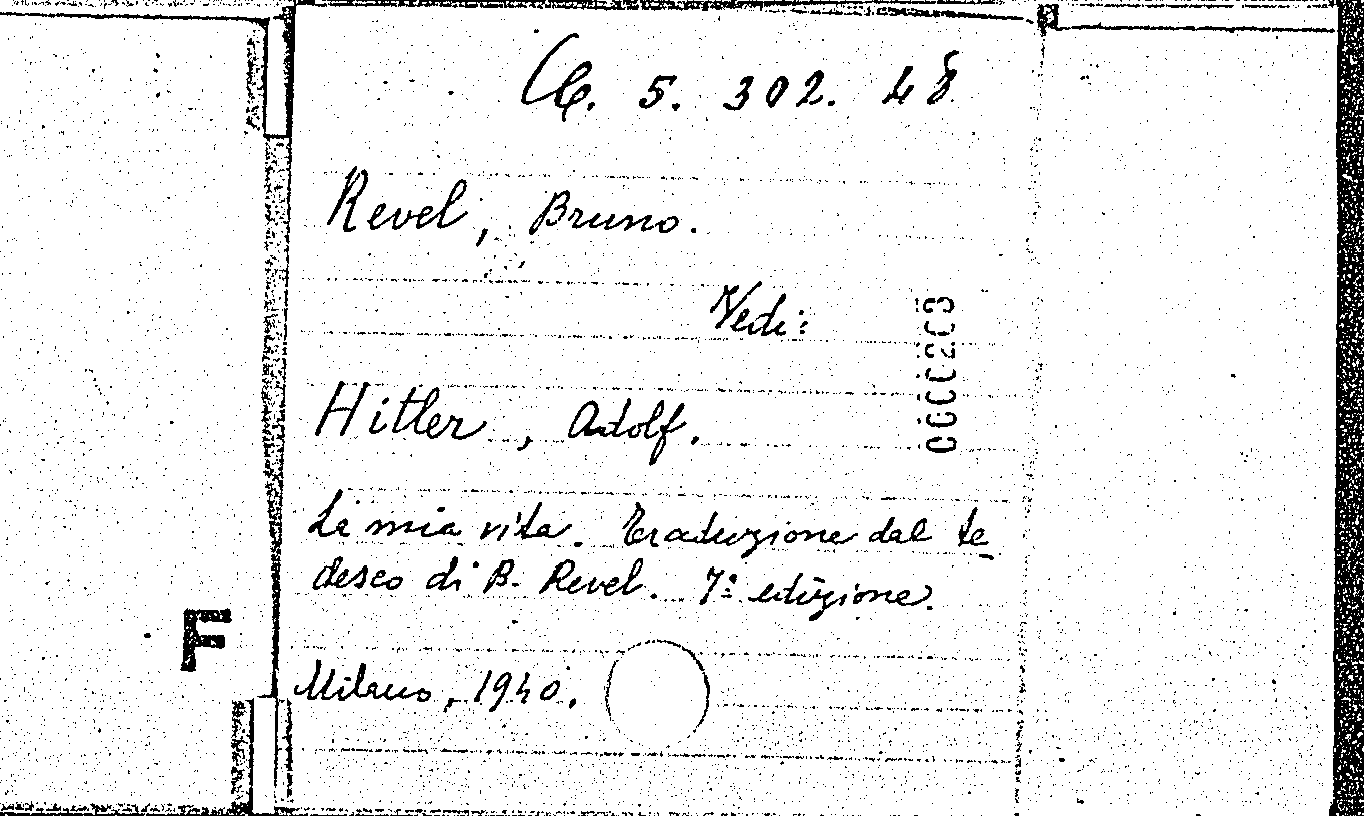 C6. 5. 302. 48
Revel, Bruno.
Vedi:
Hitler, Adolf.
La mia vita. Traduzione dal te
desco di B. Revel. 7ª edizione.
Milano, 1940.
F